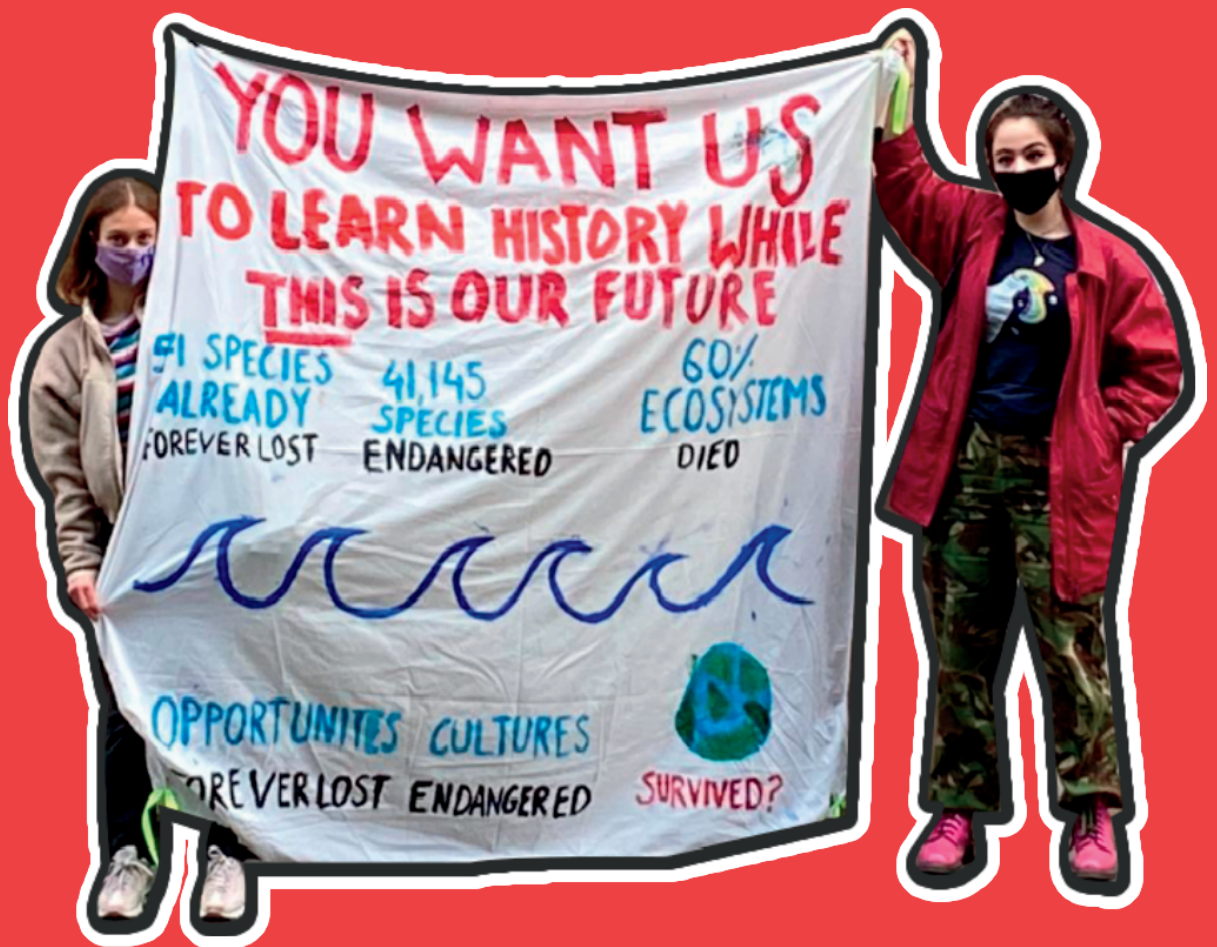 YOU WANT US
TO LEARN HISTORY WHILE
THIS IS OUR FUTURE
51 SPECIES
ALREADY
FOREVER LOST
41,145
SPECIES
ENDANGERED
60%
ECOSYSTEMS
DIED
OPPORTUNITES
FOREVER LOST
CULTURES
ENDANGERED
SURVIVED?